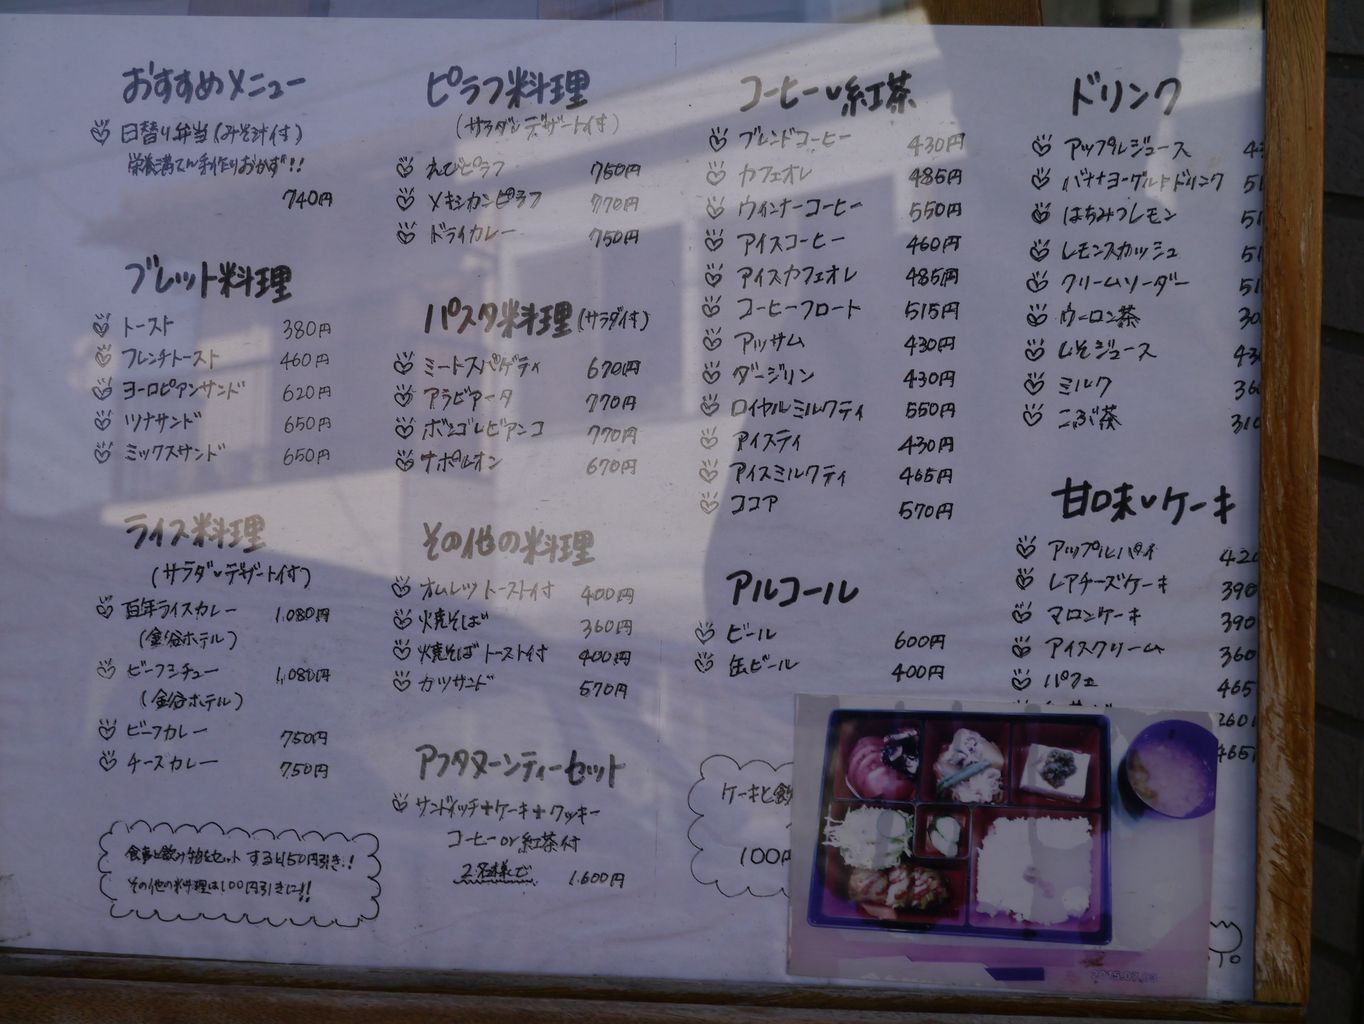 おすすめメニュー
日替り弁当(みそ汁付)
栄養満てん手作りおかず!!
740円
ブレット料理
トースト 380円
フレンチトースト 460円
ヨーロピアンサンド 620円
ツナサンド 650円
ミックスサンド 650円
ライス料理
(サラダ・デザート付)
百年ライスカレー 1,080円
(金谷ホテル)
ビーフシチュー 1,080円
(金谷ホテル)
ビーフカレー 750円
チーズカレー 750円
食事と飲み物をセットすると150円引き!!
その他の料理は100円引きに!!
ピラフ料理
(サラダ・デザート付)
えびピラフ 750円
メキシカンピラフ 770円
ドライカレー 750円
パスタ料理(サラダ付)
ミートスパゲティ 670円
アラビアータ 770円
ボンゴレビアンコ 770円
ナポルオン 670円
その他の料理
オムレツ トースト付 400円
焼そば 360円
焼そば トースト付 400円
カツサンド 570円
アフタヌーンティーセット
サンドイッチ+ケーキ+クッキー
コーヒーor紅茶付
2名様で 1,600円
コーヒー・紅茶
ブレンドコーヒー 430円
カフェオレ 485円
ウィンナーコーヒー 550円
アイスコーヒー 460円
アイスカフェオレ 485円
コーヒーフロート 515円
アッサム 430円
ダージリン 430円
ロイヤルミルクティ 550円
アイスティ 430円
アイスミルクティ 465円
ココア 570円
アルコール
ビール 600円
缶ビール 400円
ケーキと飲
100円
ドリンク
アップルジュース
バナナヨーグルトドリンク
はちみつレモン
レモンスカッシュ
クリームソーダー
ウーロン茶
しそジュース
ミルク
こぶ茶
甘味・ケーキ
アップルパイ 420
レアチーズケーキ 390
マロンケーキ 390
アイスクリーム 360
パフェ 465
2015.07.03